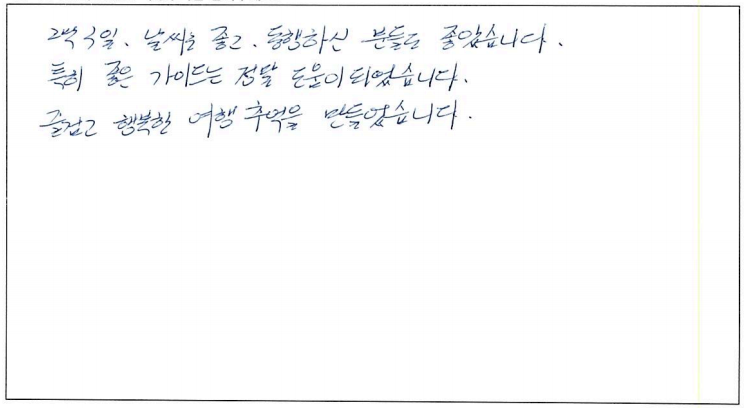 2박3일. 날씨는 좋고. 동행하신 분들도 좋았습니다.
특히 좋은 가이드는 정말 도움이 되었습니다.
즐겁고 행복한 여행 추억을 만들었습니다.